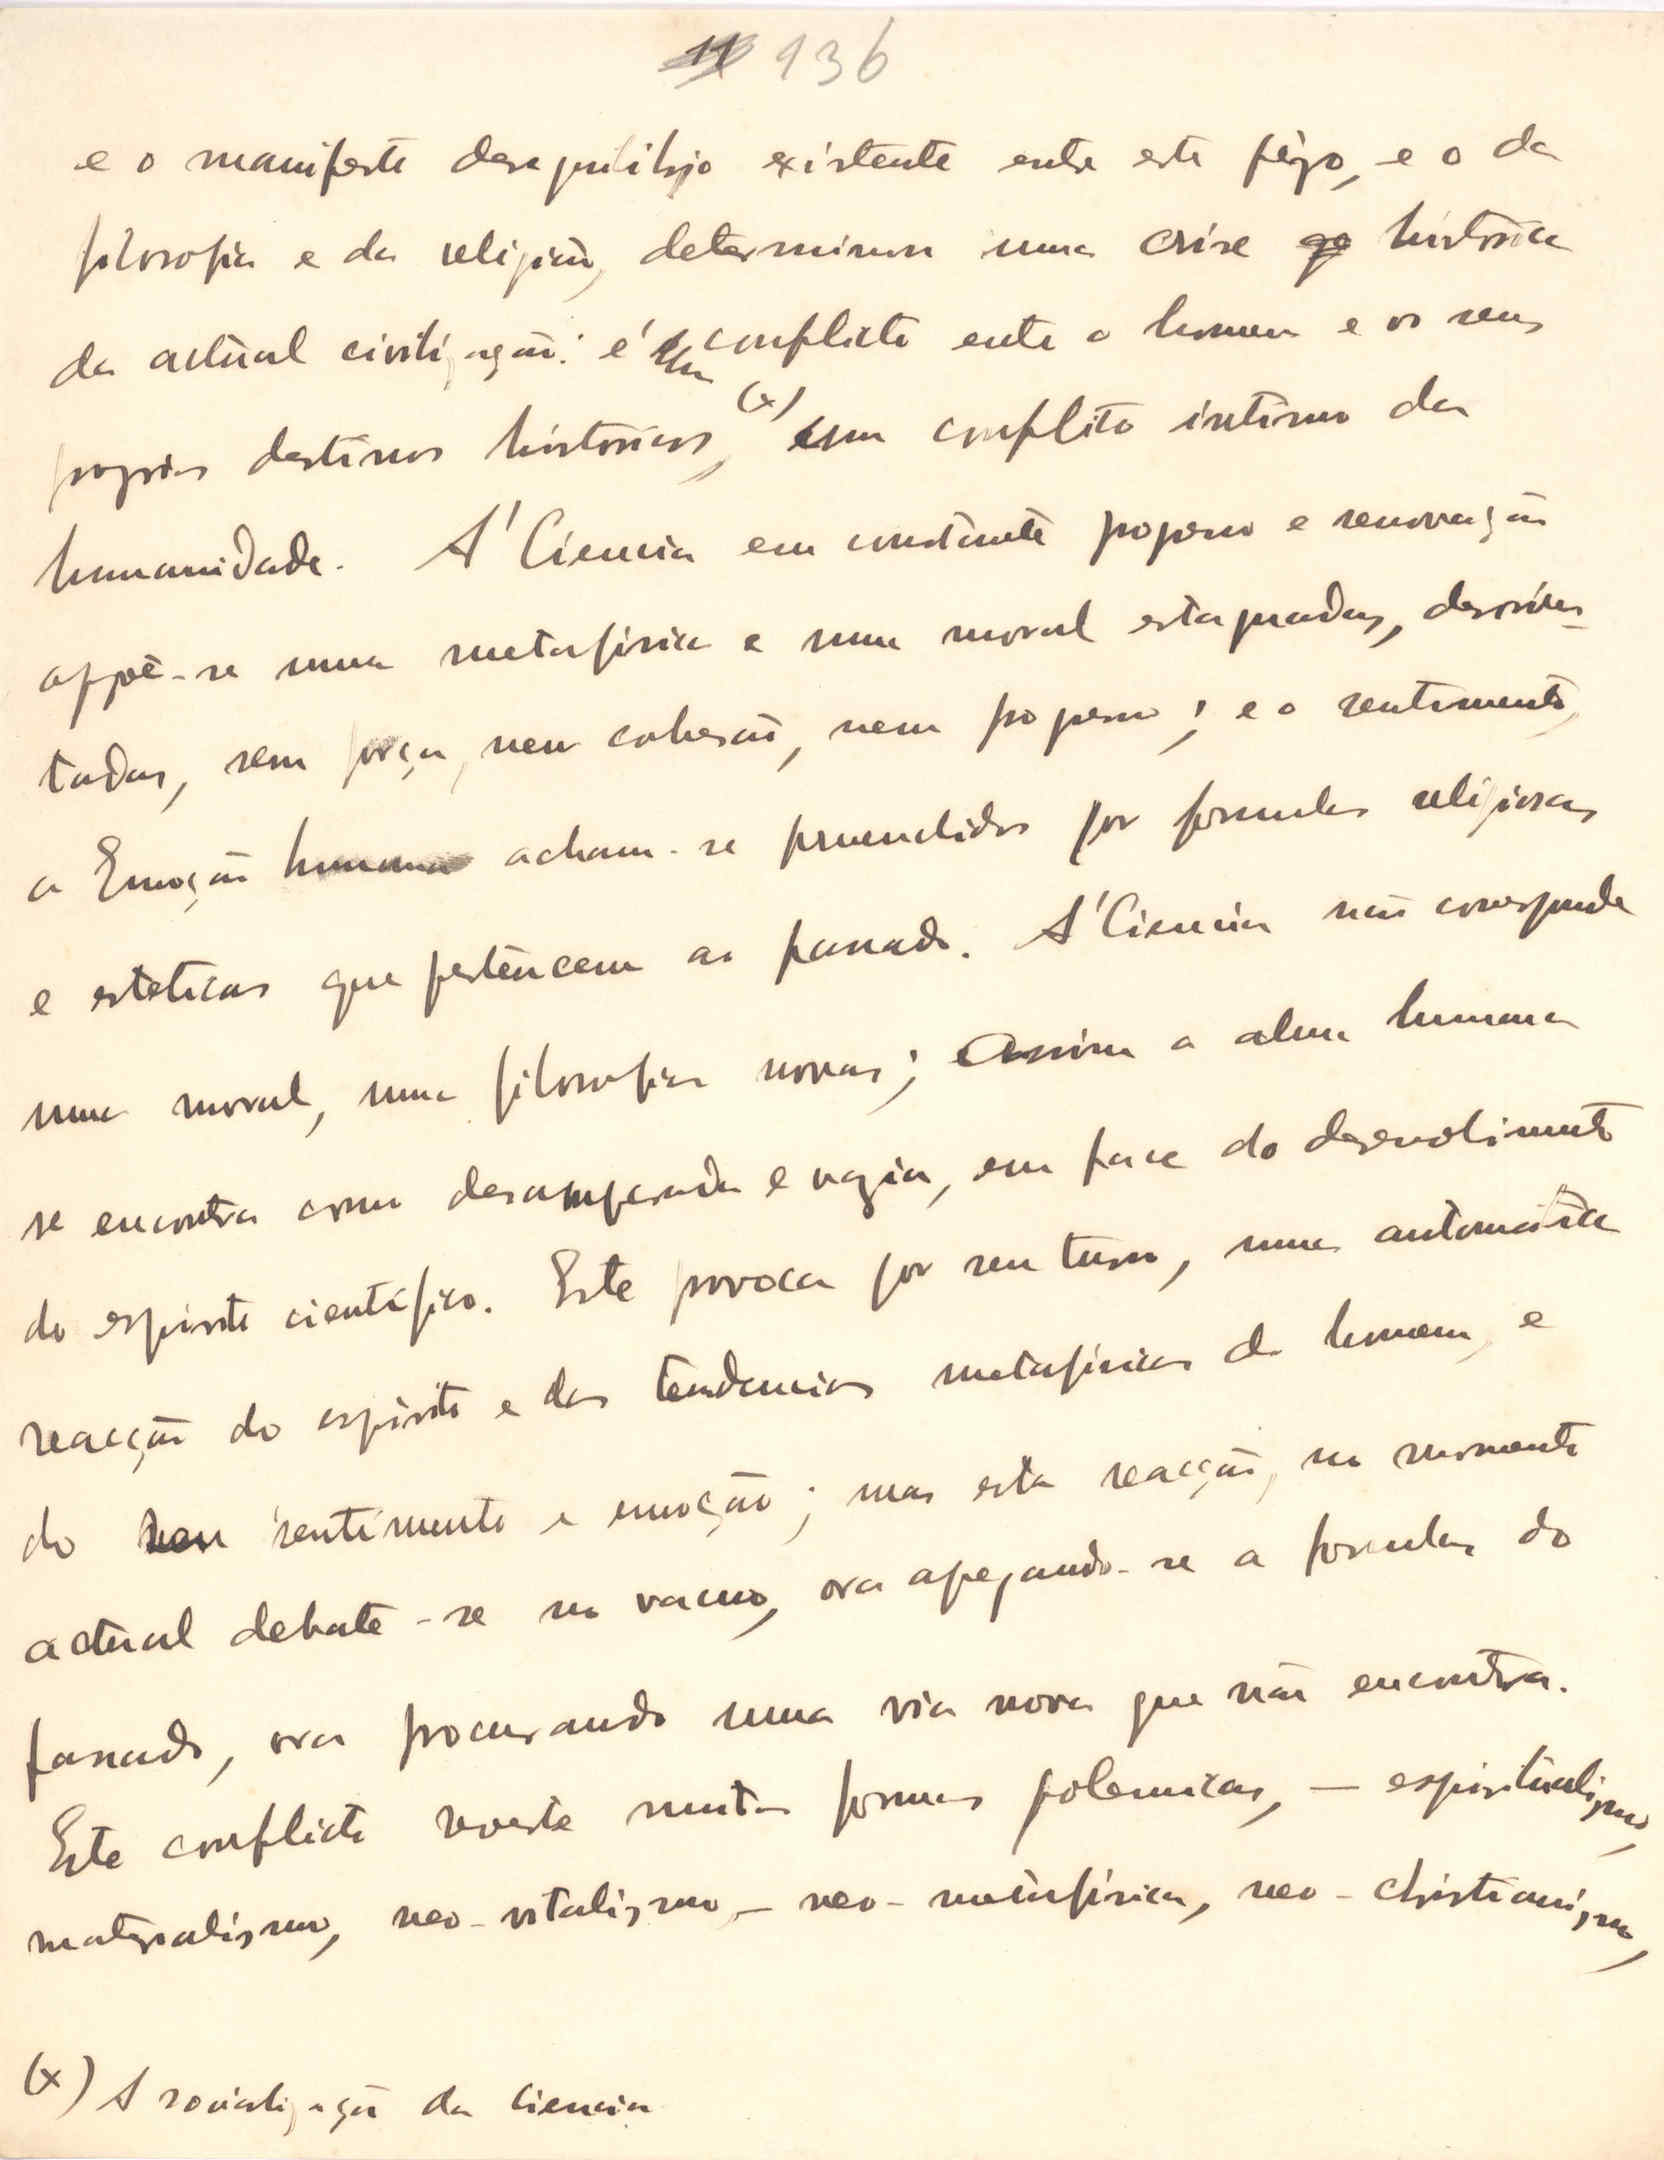 136
e o manifesto desequilibrio existente entre este facto, e o da
filosofia e da religião, determinou uma crise historica
da actual civilização: é um conflicto entre o homem e os seus
proprios destinos historicos, (x) um conflito intimo da
humanidade. Á Ciencia em constante progresso e renovação
oppõe-se uma metafisica e uma moral estagnadas, desorien-
tadas, sem força, nem cohesão, nem progresso; e o sentimento,
a Emoção humana acham-se prehendidos por formulas religiosas
e esteticas que pertencem ao passado. Á Ciencia não corresponde
uma moral, uma filosofia novas; Assim a alma humana
se encontra como desamparada e vazia, em face do desenvolvimento
do espirito cientifico. Este provoca por seu turno, uma automatica
reacção do espirito e das tendencias metafisicas do homem, e
do seu sentimento e emoção; mas esta reacção, no momento
actual debate-se no vacuo, ora apegando-se a formulas do
passado, ora procurando uma via nova que não encontra.
Este conflicto reveste muitas formas polemicas, — espiritualismo,
materialismo, neo-vitalismo, — neo-metafisica, neo-christianismo,
(x) A socialização da ciencia